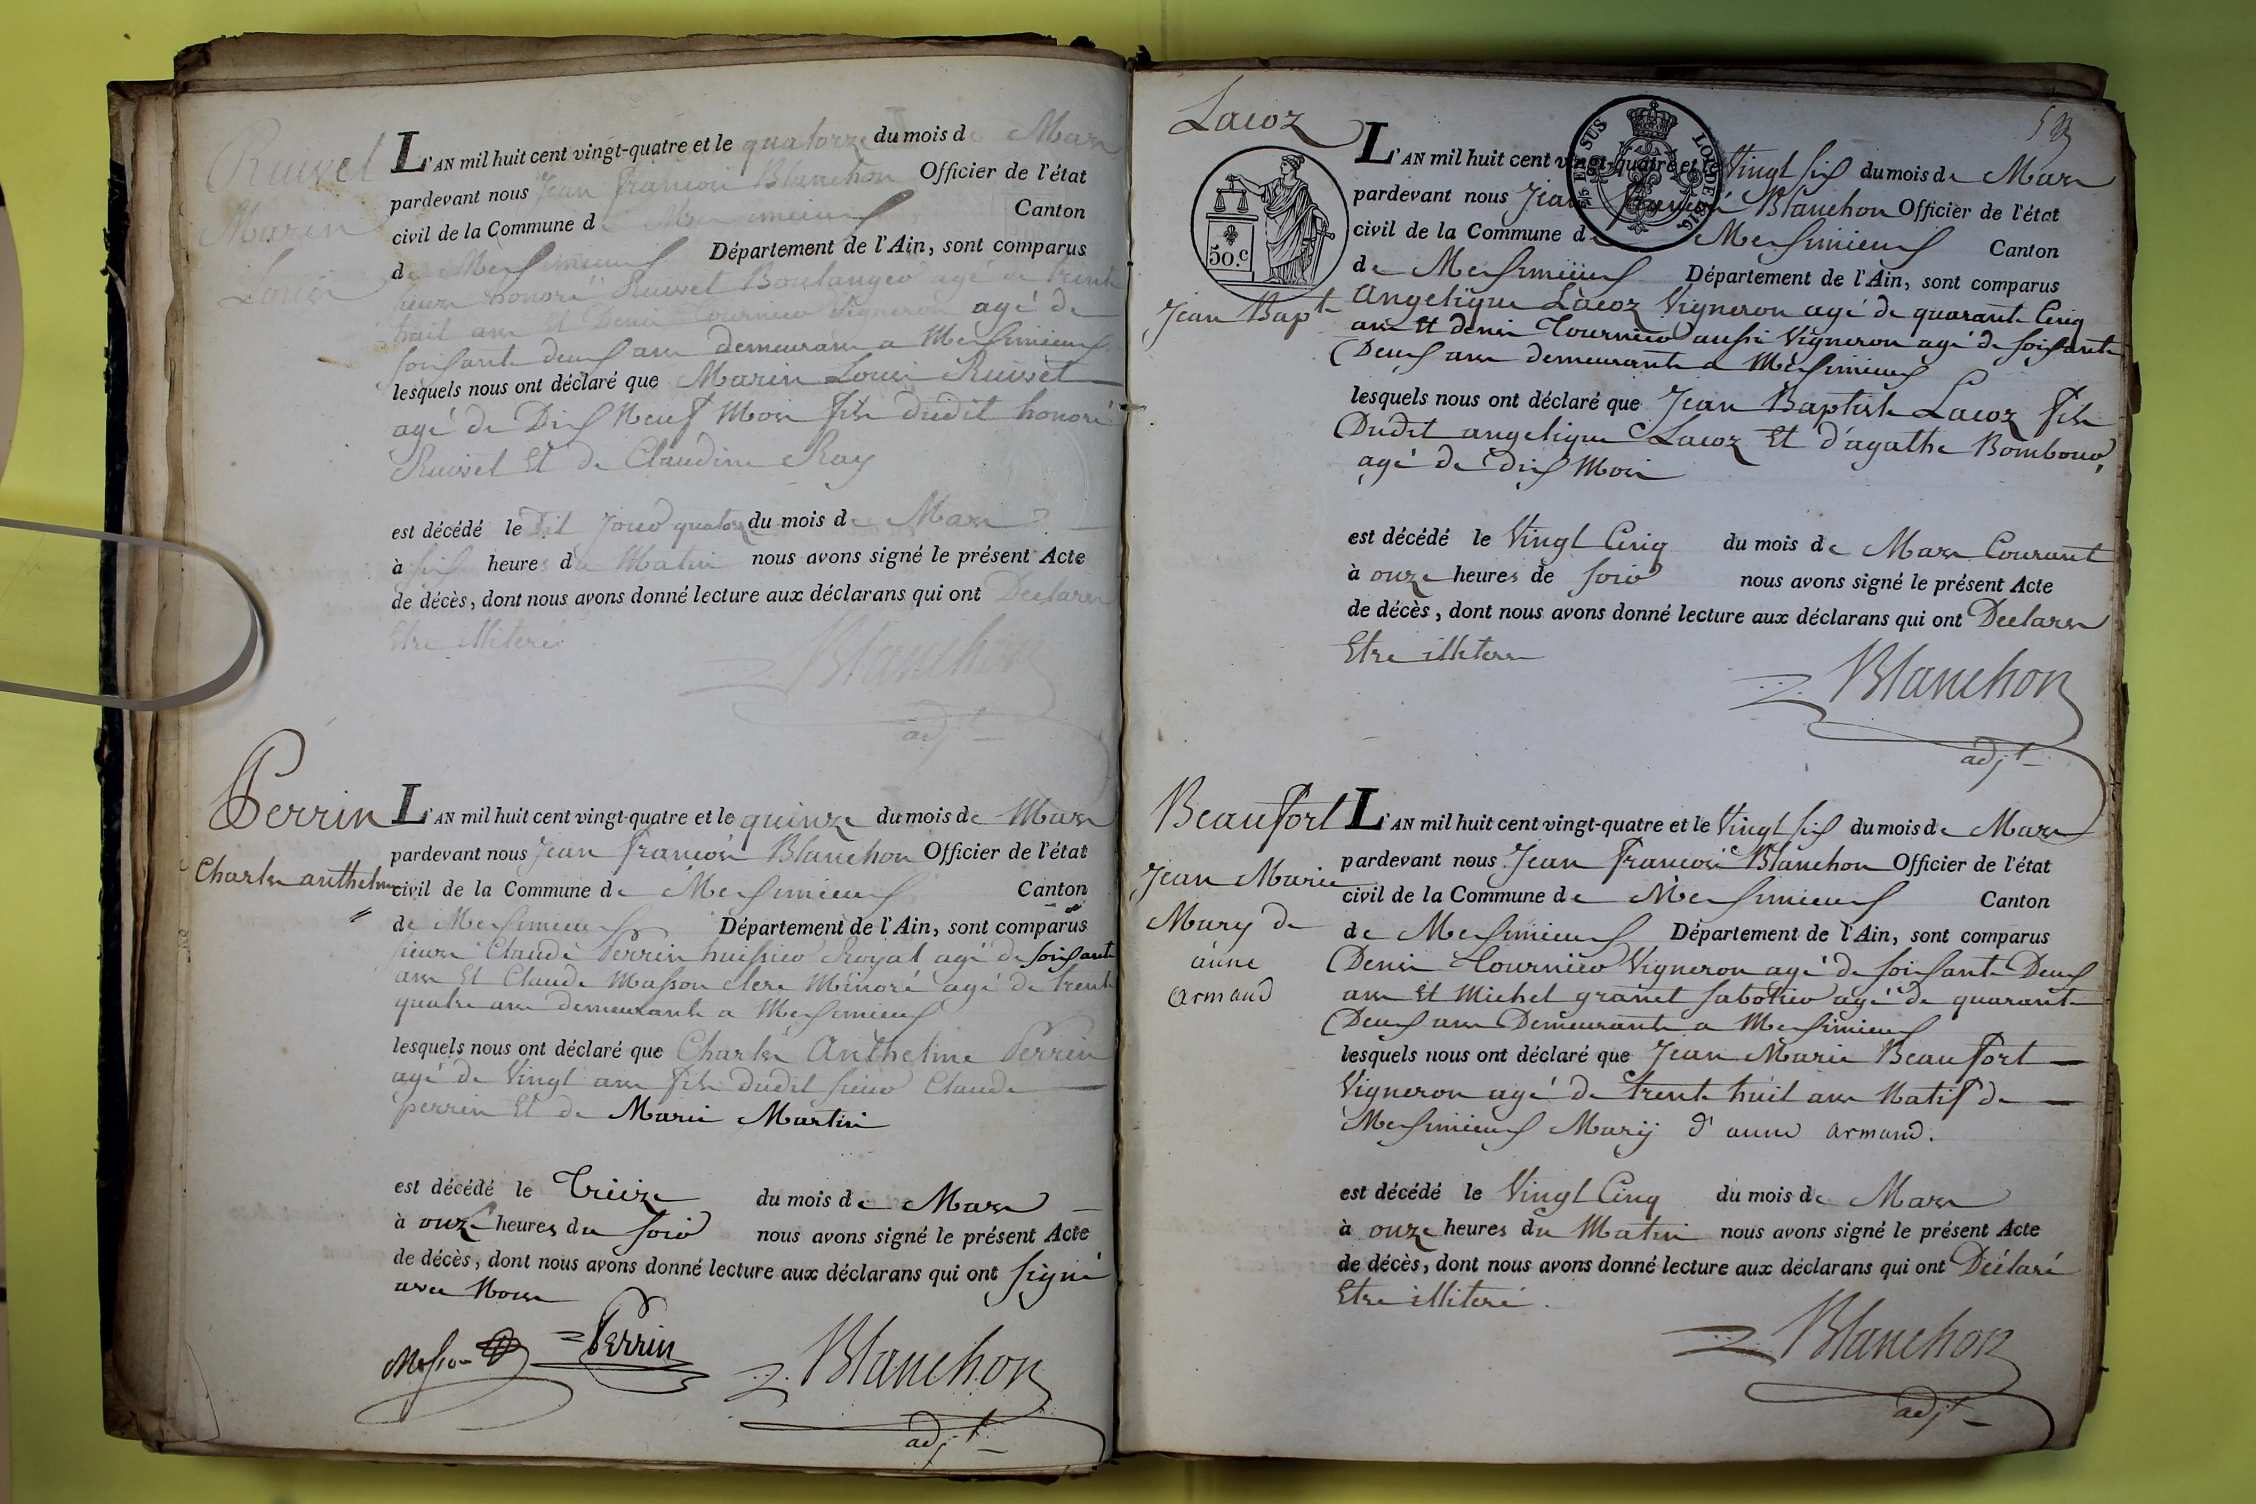 Ruivet
Marin
Louis
L'AN mil huit cent vingt-quatre et le quatorze du mois de Mars
pardevant nous Jean francois Blanchon Officier de l'état
civil de la Commune de Meximieux Canton
de Meximieux Département de l'Ain, sont comparus
sieurs honoré Ruivet Boulanger agé de trente
huit ans Et Denis Tournier Vigneron agé de
soixante deux ans demeurans a Meximieux
lesquels nous ont déclaré que Marin Louis Ruivet
agé de Dix Neuf Mois fils dudit honoré
Ruivet Et de Claudine Ray
est décédé le dit Jour quatorze du mois de Mars
à six heures du Matin nous avons signé le présent Acte
de décès, dont nous avons donné lecture aux déclarans qui ont Declarer
Etre illiteré
Blanchon
adjt
Perrin
Charles anthelme
L'AN mil huit cent vingt-quatre et le quinze du mois de Mars
pardevant nous Jean francois Blanchon Officier de l'état
civil de la Commune de Meximieux Canton
de Meximieux Département de l'Ain, sont comparus
sieurs Claude Perrin huissier Royal agé de soixante
ans Et Claude Masson clerc Minoré agé de trente
quatre ans demeurants a Meximieux
lesquels nous ont déclaré que Charles Anthelme Perrin
agé de Vingt ans fils dudit sieur Claude
perrin Et de Marie Martin
est décédé le Treize du mois de Mars
à onze heures du soir nous avons signé le présent Acte
de décès, dont nous avons donné lecture aux déclarans qui ont signé
avec Nous
Masson Perrin Blanchon
adjt
Lacoz
50.c
Jean Bapt
L'AN mil huit cent vingt-quatre et le Vingt six du mois de Mars
pardevant nous Jean francois Blanchon Officier de l'état
civil de la Commune de Meximieux Canton
de Meximieux Département de l'Ain, sont comparus
Angelique Lacoz Vigneron agé de quarante Cinq
ans Et denis Tournier aussi Vigneron agé de soixante
Deux ans demeurants a Meximieux
lesquels nous ont déclaré que Jean Baptiste Lacoz fils
Dudit angelique Lacoz Et d'agathe Bombour
agé de dix Mois
est décédé le Vingt Cinq du mois de Mars Courant
à onze heures de soir nous avons signé le présent Acte
de décès, dont nous avons donné lecture aux déclarans qui ont Declarer
Etre illiterer
Blanchon
adjt
Beaufort
Jean Marie
Mary de
anne
armand
L'AN mil huit cent vingt-quatre et le Vingt six du mois de Mars
pardevant nous Jean francois Blanchon Officier de l'état
civil de la Commune de Meximieux Canton
de Meximieux Département de l'Ain, sont comparus
Denis Tournier Vigneron agé de soixante Deux
ans Et Michel granet sabotier agé de quarante
Deux ans Demeurants a Meximieux
lesquels nous ont déclaré que Jean Marie Beaufort
Vigneron agé de trente huit ans Natif de
Meximieux Mary d'anne armand.
est décédé le Vingt Cinq du mois de Mars
à onze heures du Matin nous avons signé le présent Acte
de décès, dont nous avons donné lecture aux déclarans qui ont Déclaré
Etre illiteré.
Blanchon
adjt